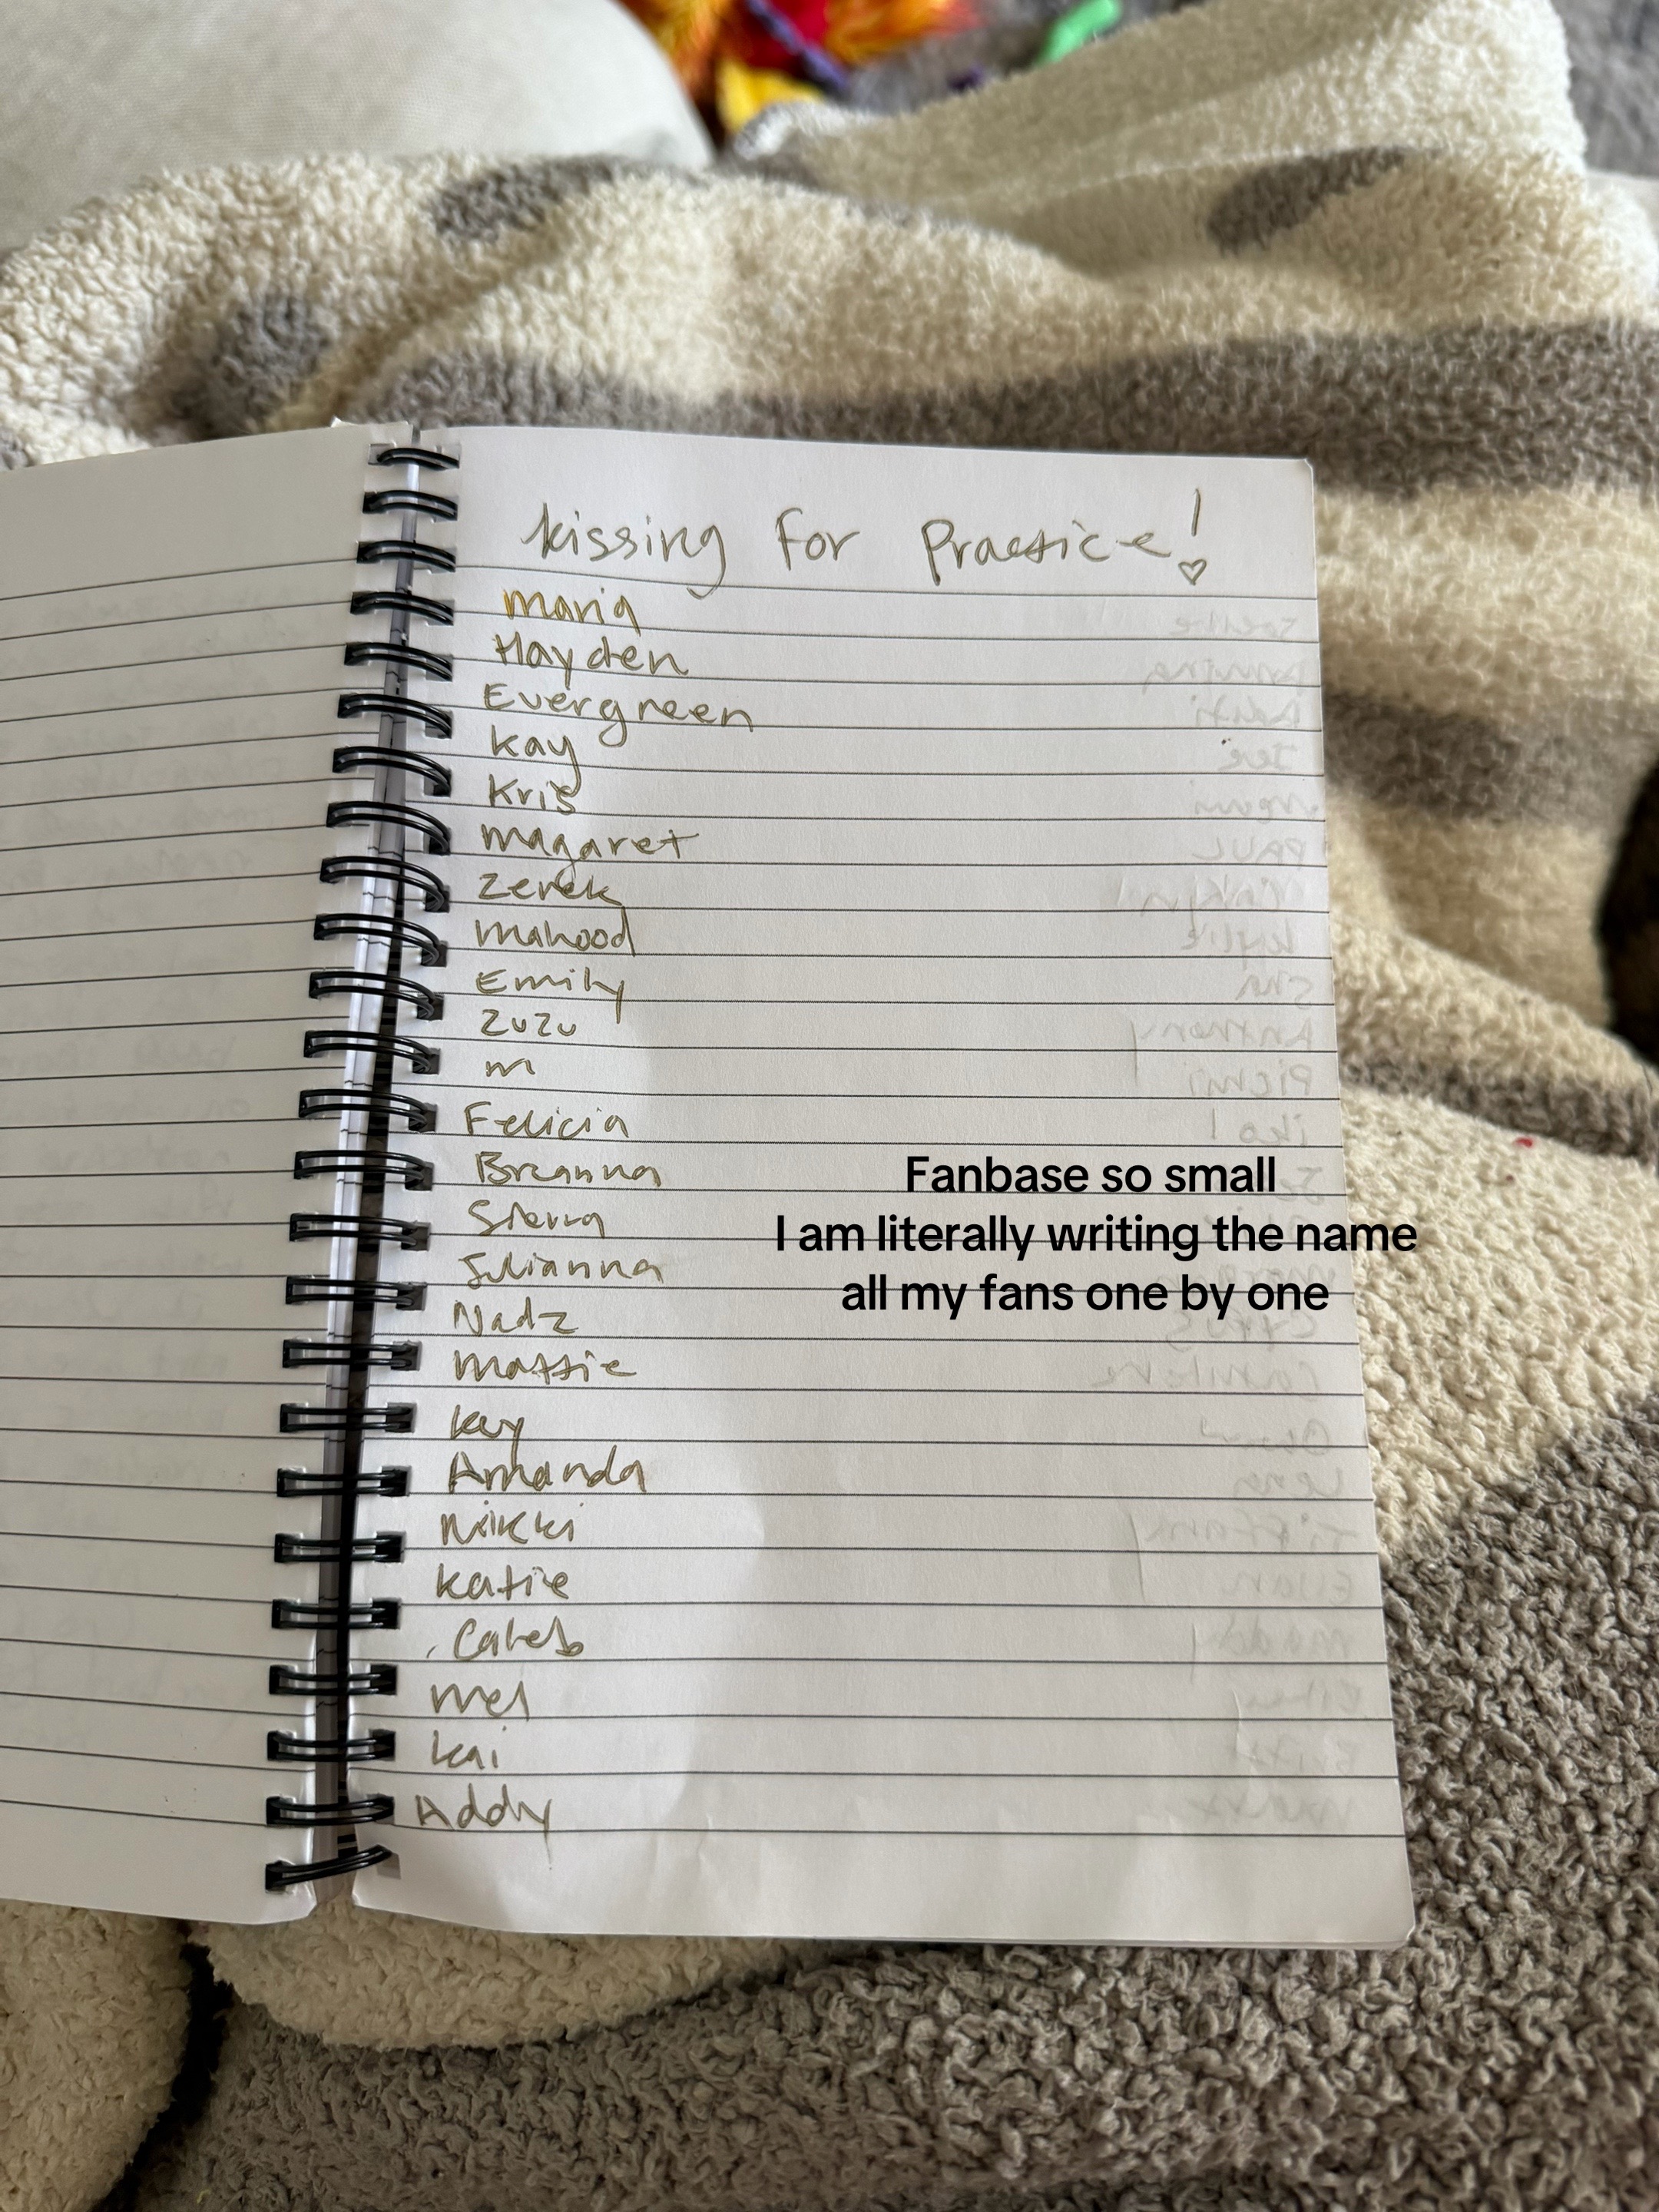 kissing for Practice!
maria
Hayden
Evergreen
kay
Kris
magaret
Zerek
mahood
Emily
ZuZu
m
Felicia
Breanna
Sierra
Julianna
Nadz
mattie
kay
Amanda
Nikki
katie
Caleb
mel
kai
Addy
Fanbase so small
I am literally writing the name
all my fans one by one